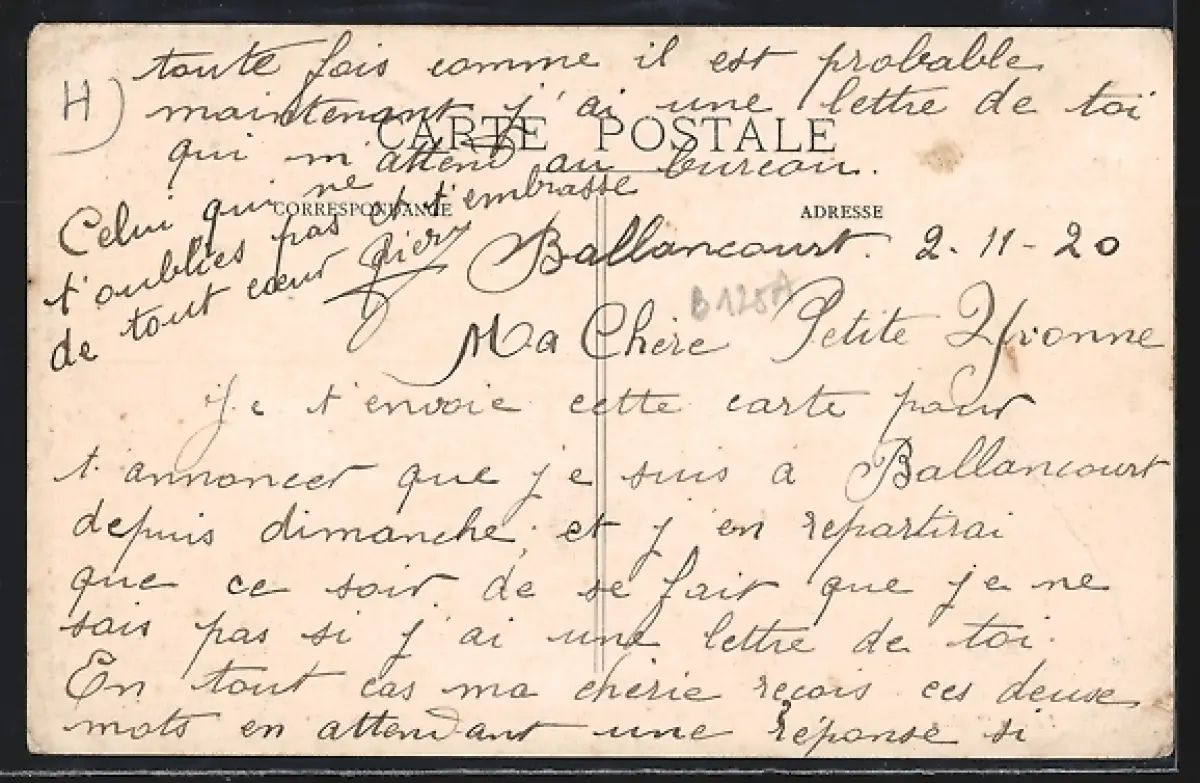 H)
toute fois comme il est probable
maintenant j'ai une lettre de toi
CARTE POSTALE
qui m'attend au bureau.
Celui qui ne
t'oublies pas et t'embrasse
de tout cœur
CORRESPONDANCE
ADRESSE
Ballancourt. 2-11-20
Ma Chère Petite Yvonne
Je t'envoie cette carte pour
t'annoncer que je suis à Ballancourt
depuis dimanche, et j'en repartirai
que ce soir de se fait que je ne
sais pas si j'ai une lettre de toi.
En tout cas ma chérie reçois ces deuse
mots en attendant une réponse si